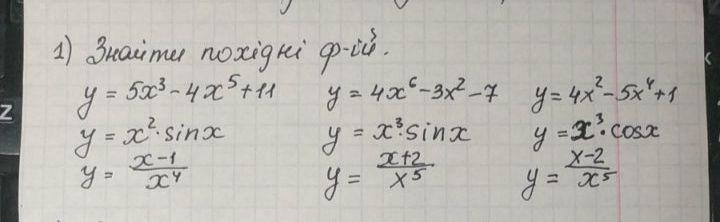 1) Знайти похідні ф-ій.
y = 5x³ - 4x⁵ + 11 y = 4x⁶ - 3x² - 7 y = 4x² - 5x⁴ + 1
y = x² · sinx y = x³ · sinx y = x³ · cosx
y = (x - 1)/x⁴ y = (x + 2)/x⁵ y = (x - 2)/x⁵
Z